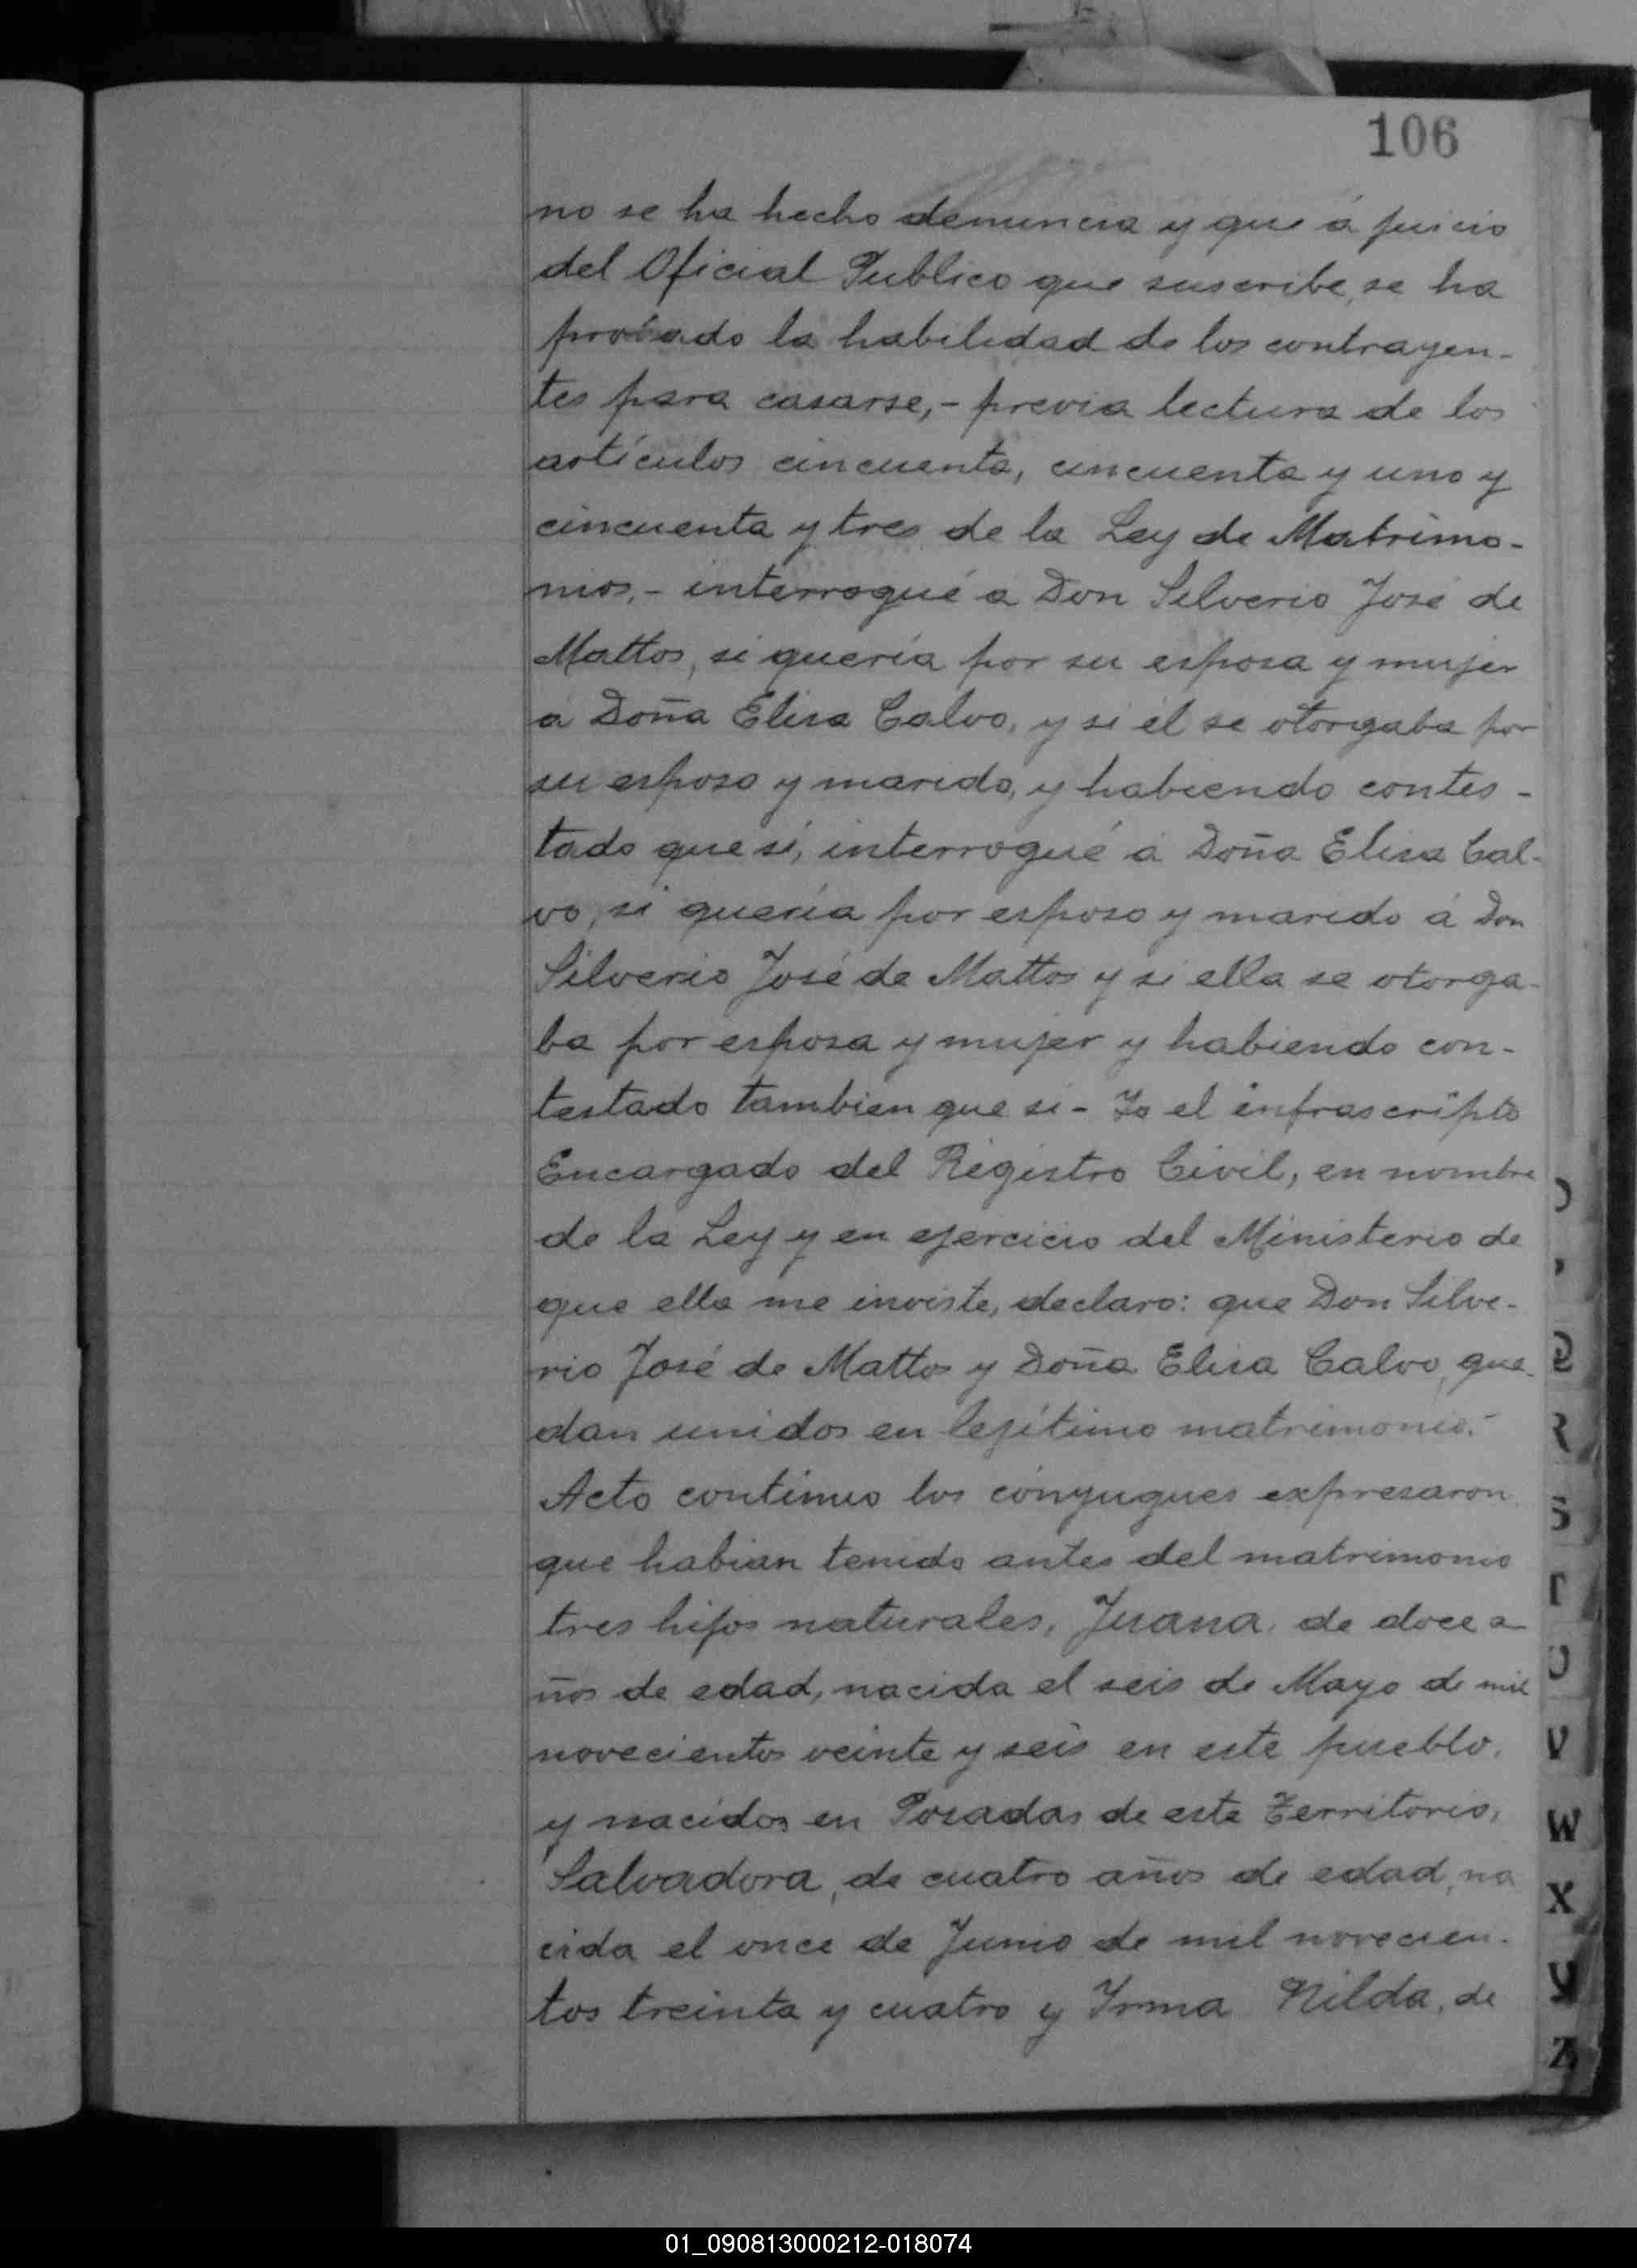 106
no se ha hecho denuncia y que á juicio
del Oficial Publico que suscribe, se ha
probado la habilidad de los contrayen-
tes para casarse,- previa lectura de los
artículos cincuenta, cincuenta y uno y
cincuenta y tres de la Ley de Matrimo-
nios,- interrogué a Don Silverio José de
Mattos, si quería por su esposa y mujer
a Doña Elisa Calvo, y si él se otorgaba por
su esposo y marido, y habiendo contes-
tado que sí, interrogué á Doña Elisa Cal-
vo, si quería por esposo y marido á Don
Silverio José de Mattos y si ella se otorga-
ba por esposa y mujer y habiendo con-
testado tambien que si- Yo el infrascripto
Encargado del Régistro Civil, en nombre
de la Ley y en ejercicio del Ministerio de
que ella me inviste, declaro: que Don Silve-
rio José de Mattos y Doña Elisa Calvo, que-
dan unidos en lejítimo matrimonio.-
Acto contínuo los cónyugues expresaron
que habian tenido antes del matrimonio
tres hijos naturales, Juana, de doce a-
ños de edad, nacida el seis de Mayo de mil
novecientos veinte y seis en este pueblo,
y nacidos en Posadas de este Territorio,
Salvadora, de cuatro años de edad, na
cida el once de Junio de mil novecien-
tos treinta y cuatro y Irma Nilda, de
R
S
T
U
V
W
X
Y
Z
01_090813000212-018074